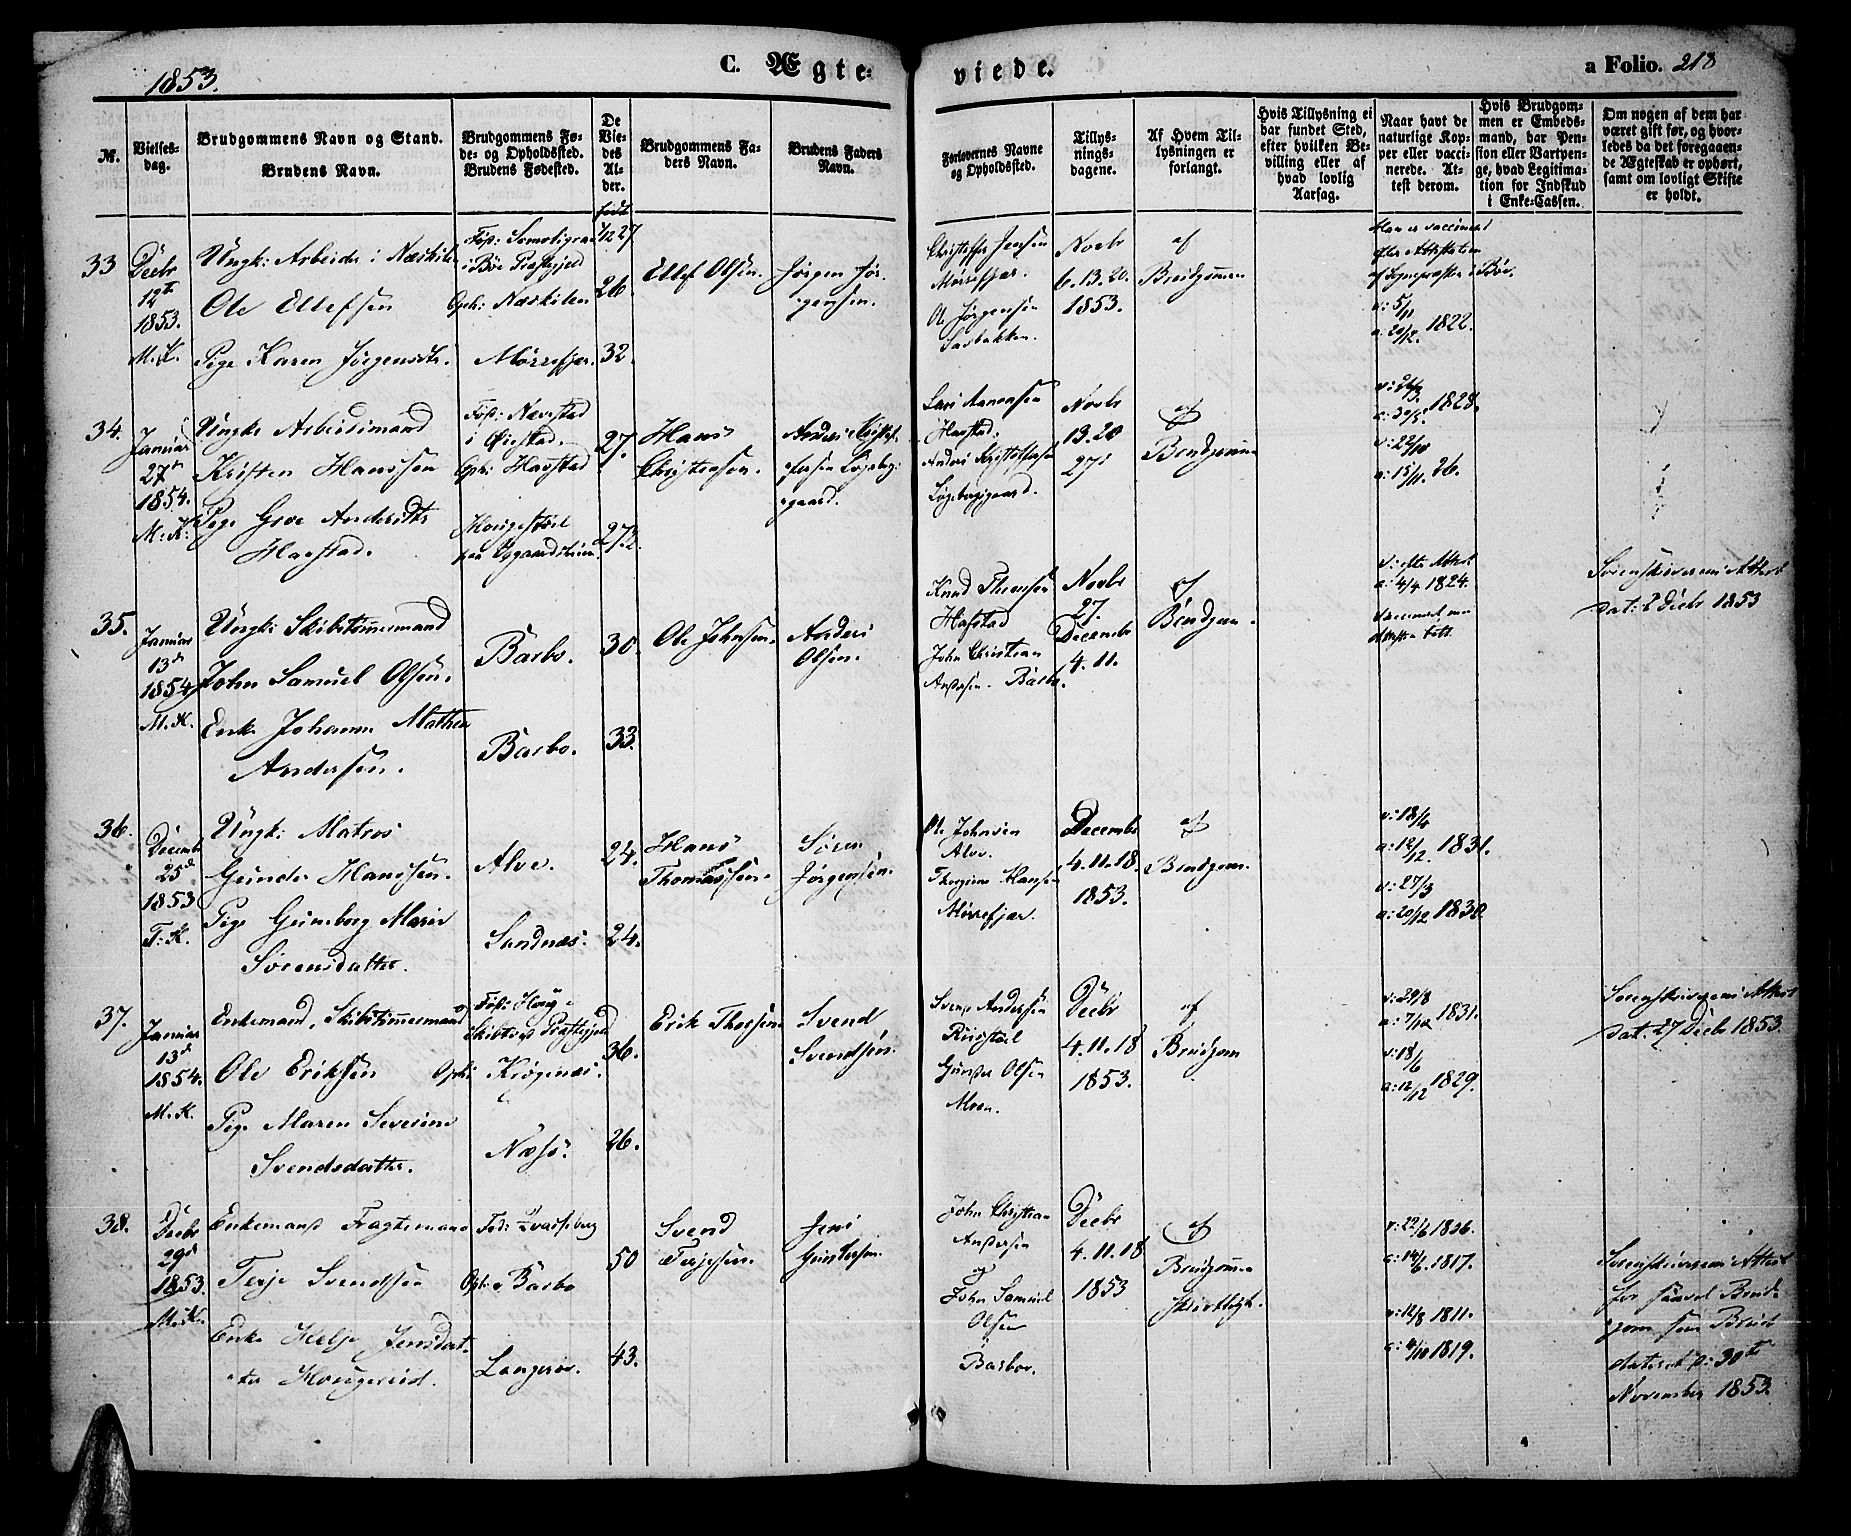 1853.
C. Ægte-
viede.
a Folio. 218
№.
Vielses-
dag.
Brudgommens Navn og Stand.
Brudens Navn.
Brudgommens Fø-
de- og Opholdssted.
Brudens Fødested.
De
Vie-
des
Al-
der.
Brudgommens Fa-
ders Navn.
Brudens Faders
Navn.
Forlovernes Navne
og Opholdssted.
Tillys-
nings-
dagene.
Af Hvem Til-
lysningen er
forlangt.
Hvis Tillysning ei
har fundet Sted,
efter hvilken Be-
villing eller af
hvad lovlig
Aarsag.
Naar havt de
naturlige Kop-
per eller vacci-
nerede. At-
test derom.
Hvis Brudgom-
men er Embeds-
mand, har Pen-
sion eller Vartpen-
ge, hvad Legitima-
tion for Indskud
i Enke-Cassen.
Om nogen af dem har
været gift før, og hvor-
ledes da det foregaaen-
de Ægteskab er ophørt,
samt om lovligt Skifte
er holdt.
33
Decbr
12te
1853.
M.K.
Ungk: Arbeider i Næskilen
Ole Ellefsen
Pige Karen Jørgensdtr.
i Bøe Præstegjeld
Oph: Næskilen
Morrefjær.
født
7/12 27
26.
32.
Ellef Olsen.
Jørgen Jør-
gensen.
Christoffer Jensen
Morrefjær.
Ole Jørgensen
Salsbakken.
Novbr
6. 13. 20.
1853.
af
Brudgommen
Han er vaccineret
efter Attestation
af Sognepræsten i Bøe.
v: 5/11
a: 20/12. 1822.
34.
Januar
27de
1854.
M:K:
Ungk: Arbeidsmand
Kristen Hanssen
Pige Groe Andersdtr
Harstad.
Føds: Nævestad
i Øiestad.
Oph: Harstad
27.
27 2
Hans
Christensen.
Anders Kristof-
fersen Løgebergs-
gaard.
Lars Aanonsen
Harstad.
Anders Kristoffersen
Løgebergsgaard.
Novbr
13. 20
27.
af
Brudgommen
a: 30/5. 1828.
v: 22/10
a: 15/11. 26.
35.
Januar
13de
1854
M.K.
Ungk: Skibstømmermand
John Samuel Olsen.
Enke Johanne Mathea
Andersen.
Barbo.
Barbo.
30.
33.
Ole Johnsen.
Anders
Olsen.
Knud Thomsen
Harstad
John Christian
Andersen. Barbo.
Novbr
27.
Decembr
4. 11.
af
Brudgom.
v: efter Attest.
a: 4/4 1824.
Sorenskriverens Attest
dat: 2 Decbr 1853
36.
Decembr
25de
1853
T.K.
Ungk: Matros
Gunder Hanssen.
Pige Gunborg Marie
Sørensdatter.
Alve.
Sandnæs.
24.
24.
Hans
Thomassen.
Søren
Jørgensen.
Ole Johnsen
Alve.
Thorgrim Hansen
Morrefjær.
Decembr
4. 11. 18.
1853.
af
Brudgom.
v: 18/4
a: 12/12. 1831.
v: 27/3
a: 20/12 1830
37.
Januar
13de
1854.
M.K.
Enkemand, Skibstømmermand
Ole Eriksen
Pige Maren Severine
Svendsdatter.
Oph: Krøgenæs.
Næs.
36.
26.
Erik Thorsen
Svend
Svendsen.
Svend Andersen
Gunder Olsen
Decbr
4. 11. 18
1853.
af
Brudgom
v: 29/8
a: 7/12 1831.
v: 18/6
a: 12/12 1829.
Sorenskriverens Attest
dat. 27 Decbr 1853.
38.
Decbr
29de
1853.
M.K.
Enkemand Fragtemand
Terje Svendsen
Enke Helje Jensdat-
ter Hougerud.
Fød: Qvasseberg
Oph: Barbo
Langerør.
50
43.
Svend
Terjesen.
Jens
Gundersen.
John Christian
Andersen
og
John Samuel
Olsen
Barbo.
Decbr
4. 11. 18
1853
af
Brudgommen
skriftligt.
v: 22/6 1806.
a: 14/6. 1817.
v: 12/8 1811.
a: 4/10 1819.
Sorenskriverens Attest
for saavel Brud-
gom som Brud
dateret d: 30te
November 1853.